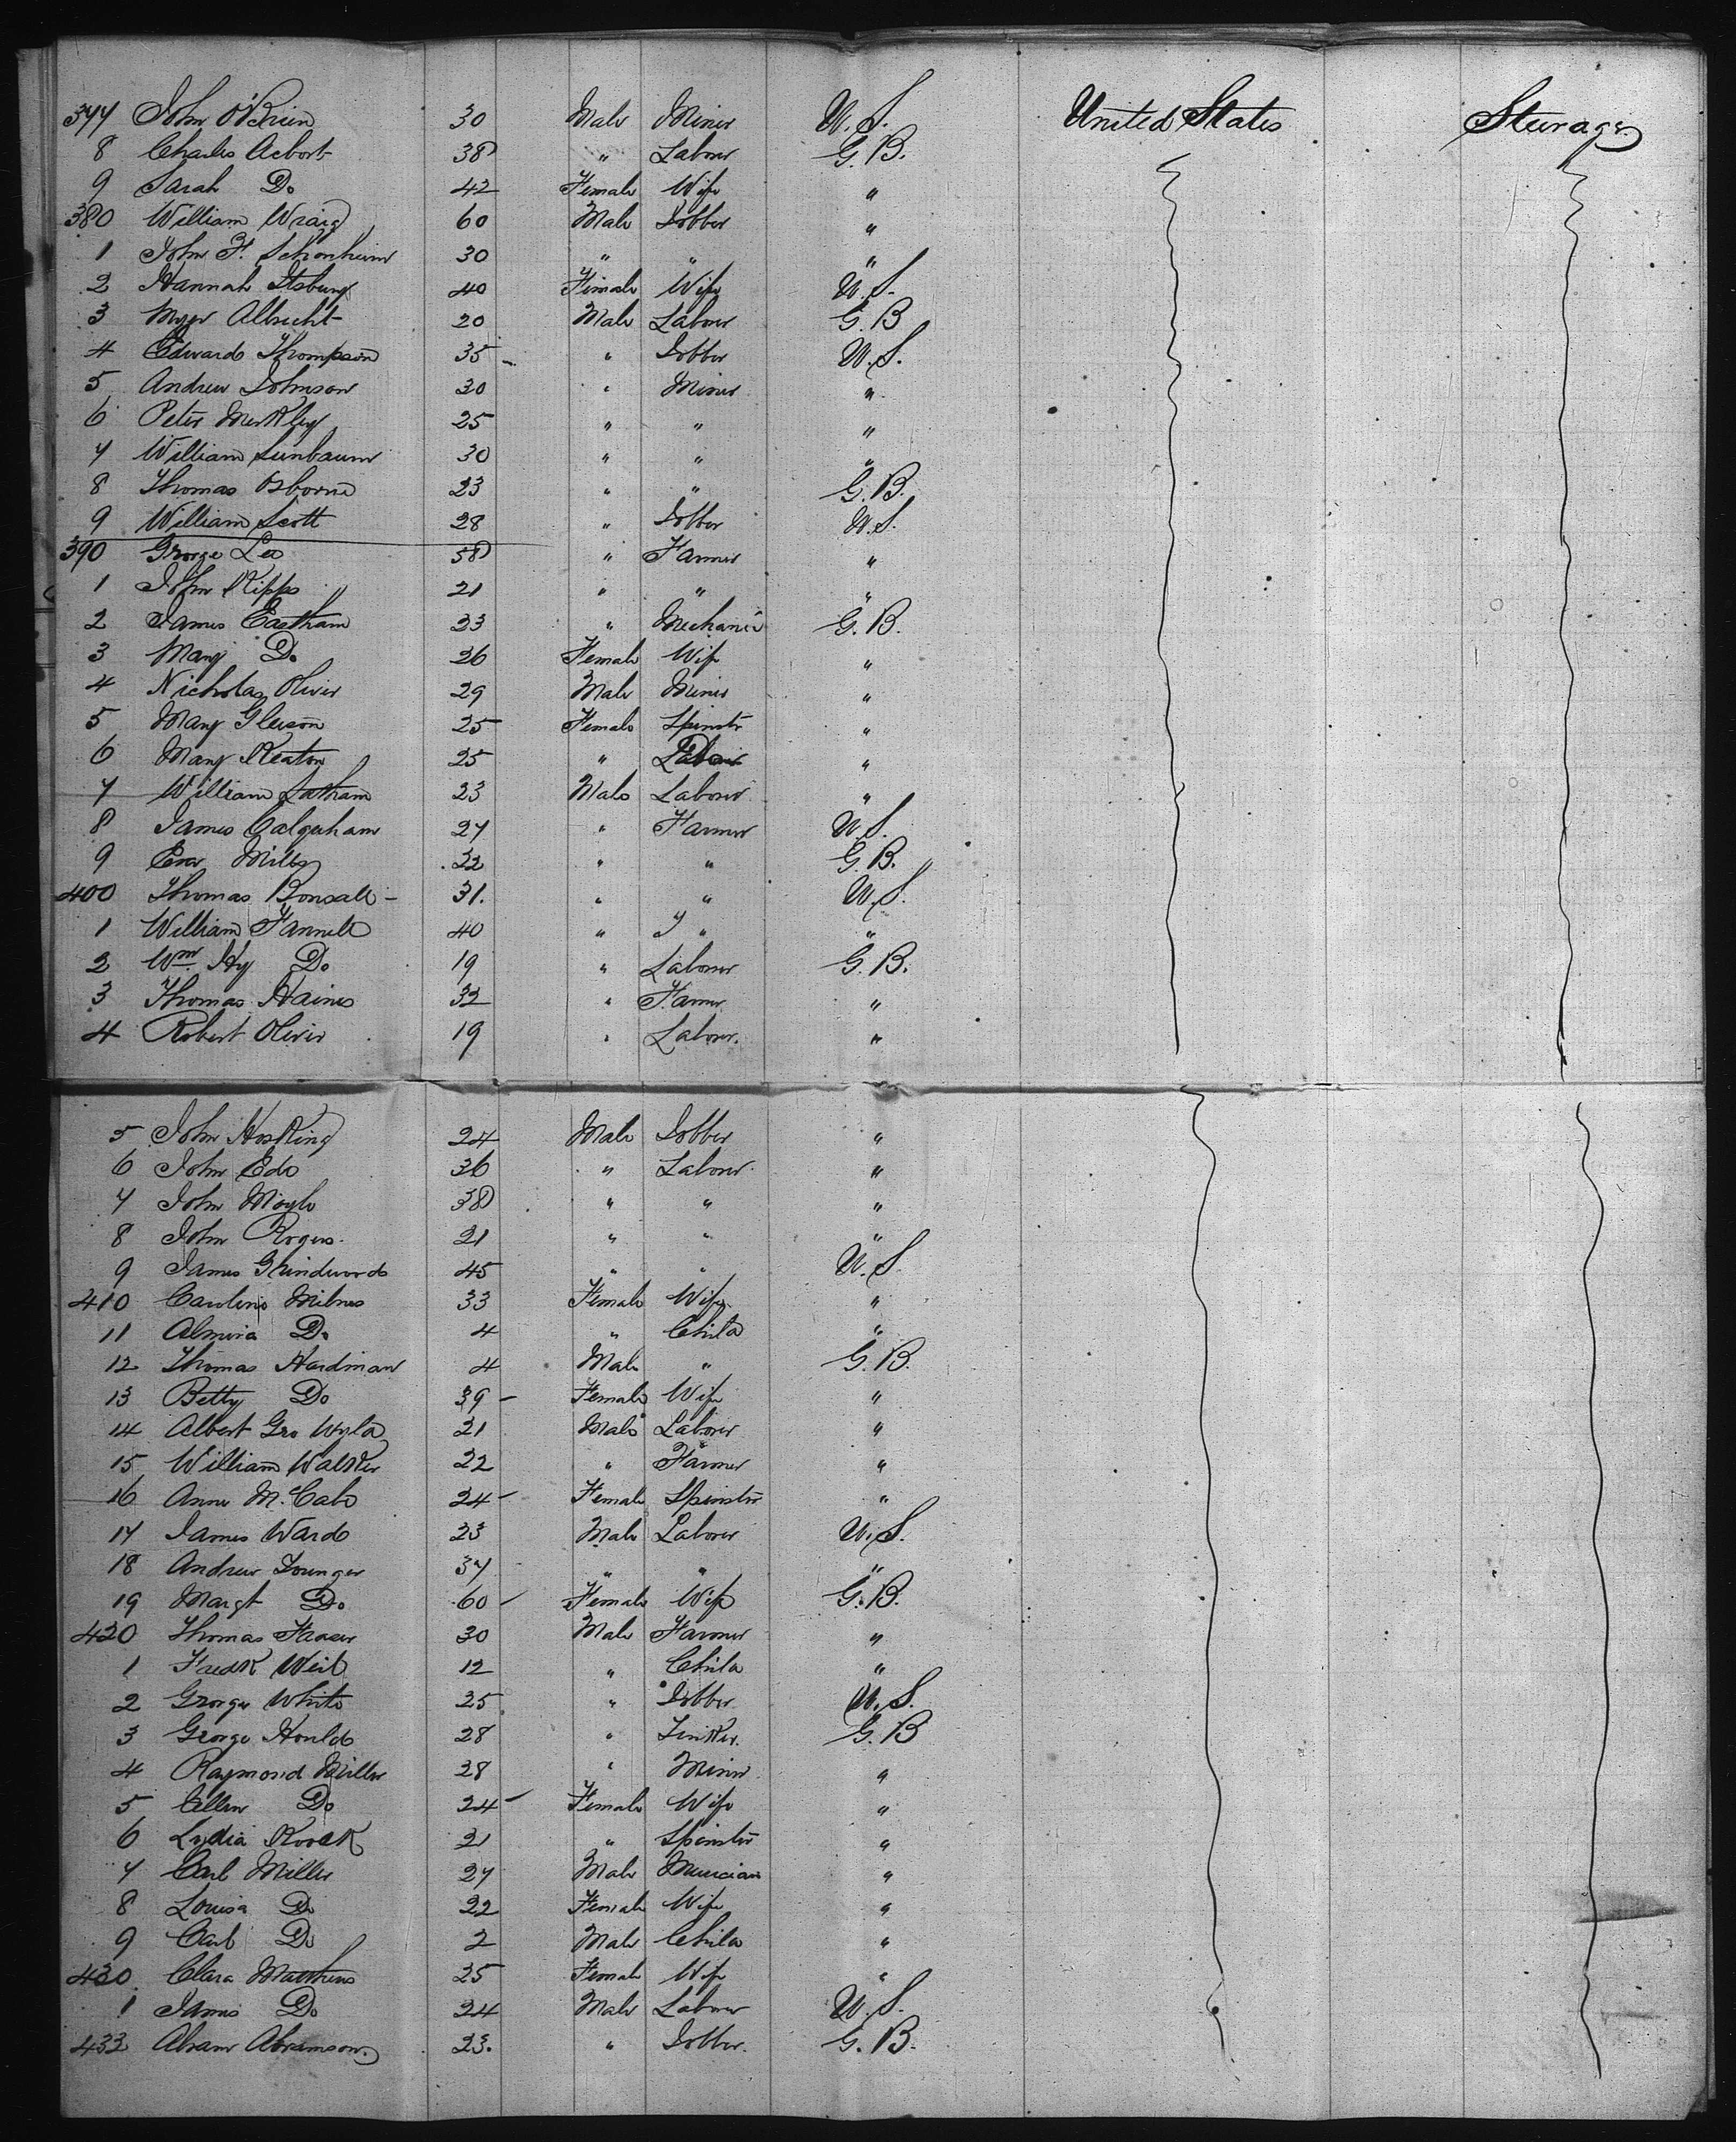 377 John O'Brien 30 Male Miner U.S. United States Steerage
8 Charles Acbort 38 " Laborer G.B.
9 Sarah Do 42 Female Wife "
380 William Wraig 60 Male Jobber "
1 John F. Schonheim 30 " " "
2 Hannah 40 Female Wife U.S.
3 Albrecht 20 Male Laborer G.B
4 Edward Thompson 35 " Jobber U.S.
5 Andrew Johnson 30 " Miner "
6 Peter Merkley 25 " " "
7 William Sunbaum 30 " " "
8 Thomas Osborne 23 " " G.B.
9 William Scott 28 " Jobber U.S.
390 George Lea 58 " Farmer "
1 John Kipps 21 " " "
2 James Eastham 23 " Mechanic G.B.
3 Mary Do 26 Female Wife "
4 Nicholas Oliver 29 Male Miner "
5 Mary Gleeson 25 Female Spinstr "
6 Mary Keaton 25 " "
7 William Latham 23 Male Laborer "
8 James Calquham 27 " Farmer U.S.
9 Mills 32 " " G.B.
400 Thomas Bonsall 31. " " U.S.
1 William Fannell 40 " " "
2 Wm. Hy Do 19 " Laborer G.B.
3 Thomas Haines 32 " Farmer "
4 Robert Oliver 19 " Laborer. "
5 John Hosking 24 Male Jobber "
6 John Ede 36 " Laborer "
7 John Moyle 38 " " "
8 John Rogers 21 " " "
9 James Grindwords 45 " " U.S.
410 Caroline Milnes 33 Female Wife "
11 Almira Do 4 " Child "
12 Thomas Hardman 4 Male " G.B.
13 Betty Do 39 Female Wife "
14 Albert Geo Wyld 21 Male Laborer "
15 William Walker 22 " Farmer "
16 Anne McCabe 24 Female Spinstr "
17 James Ward 23 Male Laborer U.S.
18 Andrew Younger 37 " " "
19 Margt Do 60 Female Wife G.B.
420 Thomas Fraser 30 Male Farmer "
1 Fredk Weil 12 " Child "
2 George White 25 " Jobber U.S.
3 George Hould 28 " Tinker. G.B
4 Raymond Miller 28 " Miner "
5 Ellen Do 24 Female Wife "
6 Lydia 21 " Spinster "
7 Carl Miller 27 Male Musician "
8 Louisa Do 22 Female Wife "
9 Carl Do 2 Male Child "
430 Clara Matthews 25 Female Wife "
1 James Do 24 Male Laborer U.S.
432 Abram Abramson. 23. " Jobber. G.B.